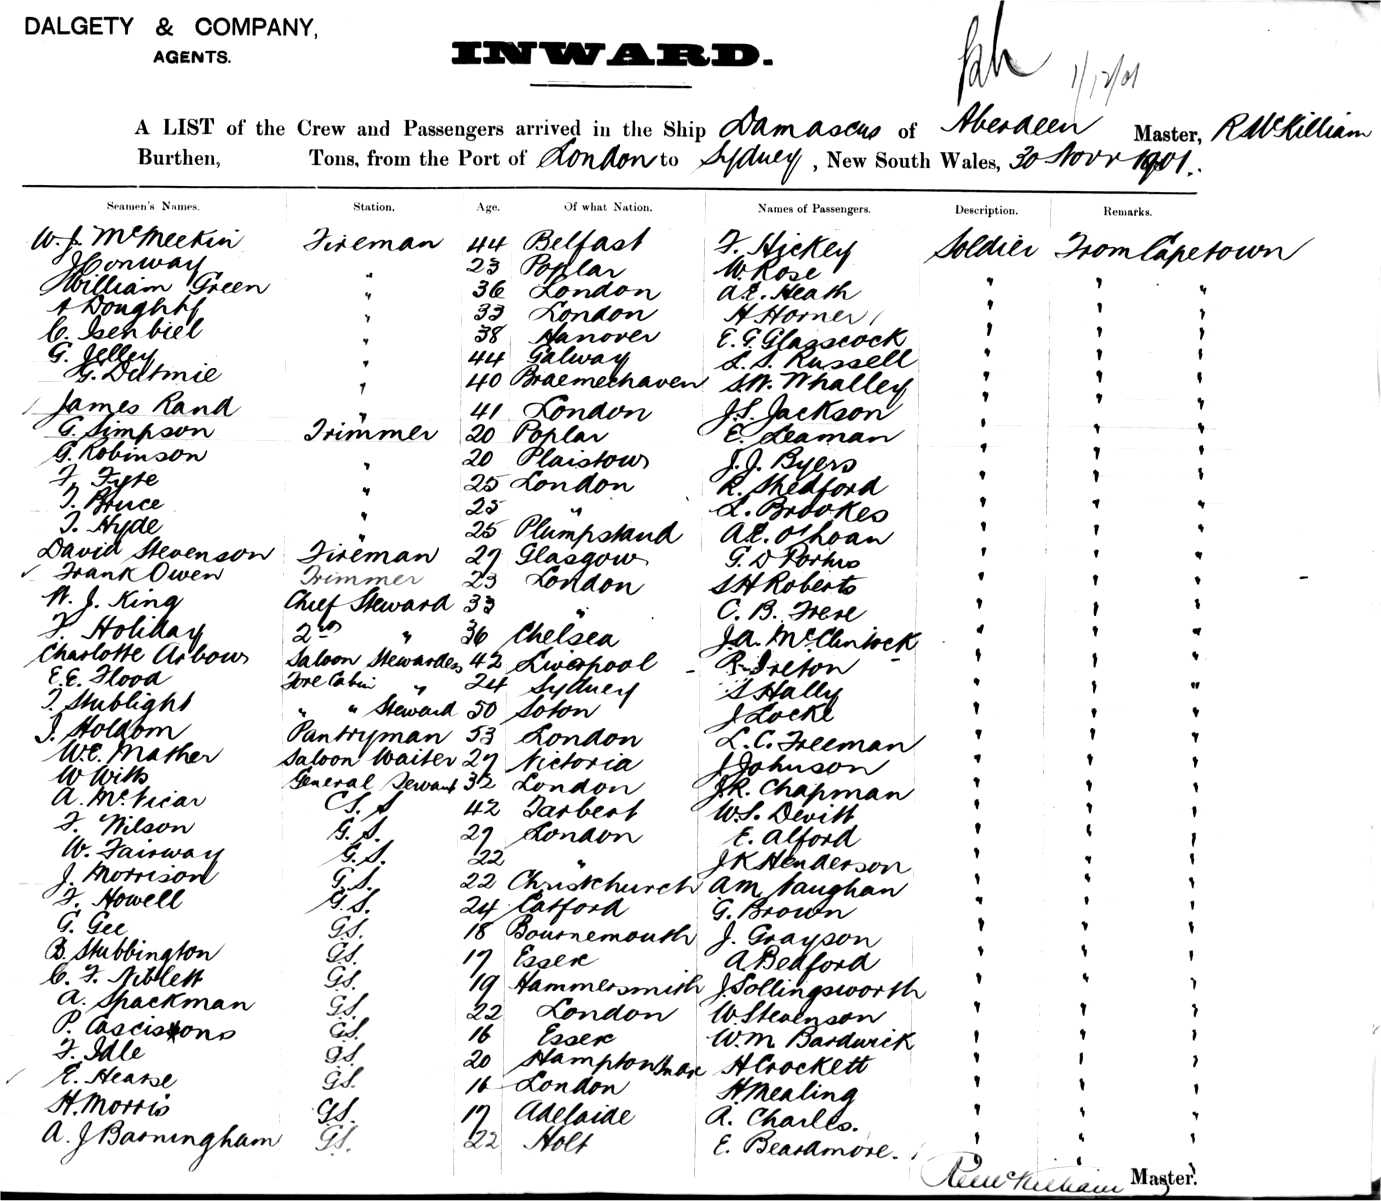 DALGETY & COMPANY,
AGENTS.
INWARD.
1/12/01
A LIST of the Crew and Passengers arrived in the Ship Damascus of Aberdeen Master, R McKilliam
Burthen, Tons, from the Port of London to Sydney, New South Wales, 30 Novr 1901.
Seamen's Names. Station. Age. Of what Nation. Names of Passengers. Description. Remarks.
W. J. McMeekin Fireman 44 Belfast F. Hickey Soldier From Capetown
J Conway " 23 Poplar W. Rose " " "
William Green " 36 London A.E. Heath " " "
A Doughty " 33 London H Horner " " "
C. Isenbiel " 38 Hanover E. G Glasscock " " "
G. Jelley " 44 Galway L. S. Russell " " "
G. Dutmie " 40 Braemeehaven S.W. Whalley " " "
James Rand " 41 London J.S. Jackson " " "
G. Simpson Trimmer 20 Poplar E. Leaman " " "
G. Robinson " 20 Plaistow J.J. Byers " " "
F. Fyfe " 25 London R. Shedford " " "
T. Bruce " 25 " L. Brookes " " "
T. Hyde " 25 Plumpstead A.E. O'Loan " " "
David Stevenson Fireman 27 Glasgow G. D Portus " " "
Frank Owen Trimmer 23 London S H Roberts " " "
W. J. King Chief Steward 33 " C. B. Frere " " "
F. Holiday 2nd " 36 Chelsea J.A. McClintock " " "
Charlotte Arbow Saloon Stewardess 42 Liverpool R. Ireton " " "
E.E. Flood Fore Cabin " 24 Sydney S Hally " " "
T. Stublight " " Steward 50 Soton J Locke " " "
J. Holdom Pantryman 53 London L. C. Freeman " " "
W.E. Mather Saloon Waiter 27 Victoria J Johnson " " "
W Witts General Servant 32 London J.R. Chapman " " "
A. McVicar G. S 42 Tarbert W.S. Devitt " " "
F. Wilson G. S. 27 London E. Alford " " "
W. Fairway G. S. 22 " J K Henderson " " "
J. Morrison G. S. 22 Christchurch A M Vaughan " " "
F. Howell G. S. 24 Catford G. Brown " " "
G. Gee G.S. 18 Bournemouth J. Grayson " " "
B. Stubbington G.S. 17 Essex A Bedford " " "
C. F. Niblett G.S. 19 Hammersmith J. Sollingsworth " " "
A. Spackman G.S. 22 London W. Stevenson " " "
P. G.S. 16 Essex W. M Bardwick " " "
F. Idle G.S. 20 Hampton H Crockett " " "
E. Hearse G.S. 16 London H Mealing " " "
H. Morris G.S. 17 Adelaide A. Charles. " " "
A. J Barningham G.S. 22 Holt E. Beardmore. " " "
R McKilliam Master.